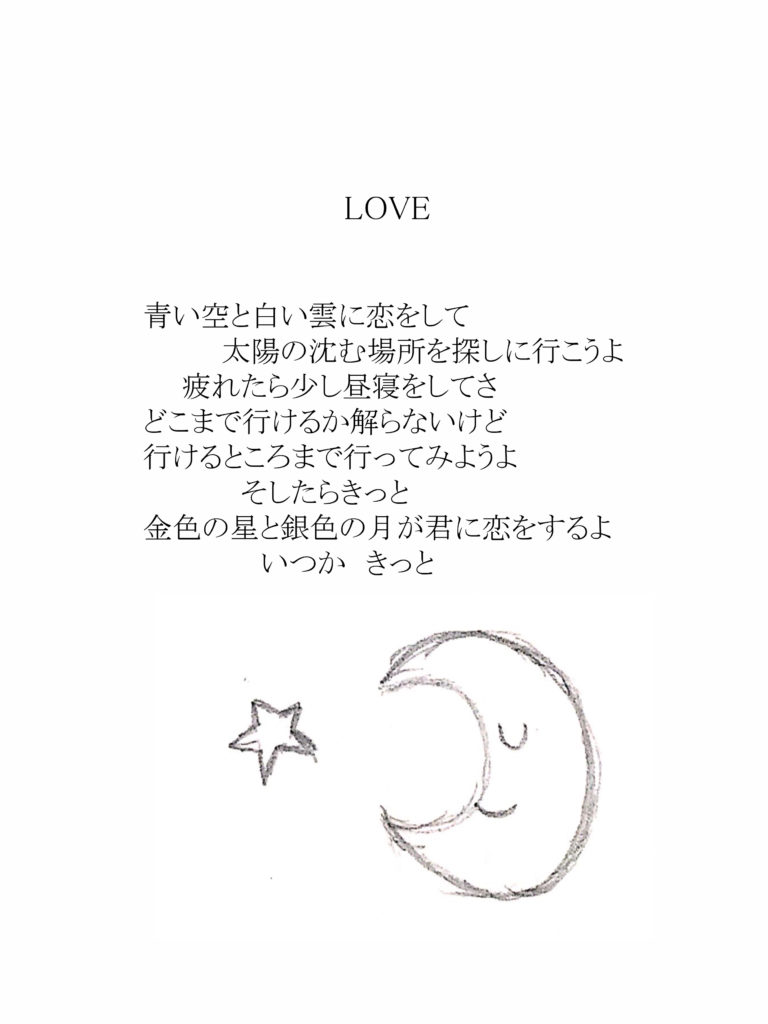 LOVE
青い空と白い雲に恋をして
太陽の沈む場所を探しに行こうよ
疲れたら少し昼寝をしてさ
どこまで行けるか解らないけど
行けるところまで行ってみようよ
そしたらきっと
金色の星と銀色の月が君に恋をするよ
いつか　きっと